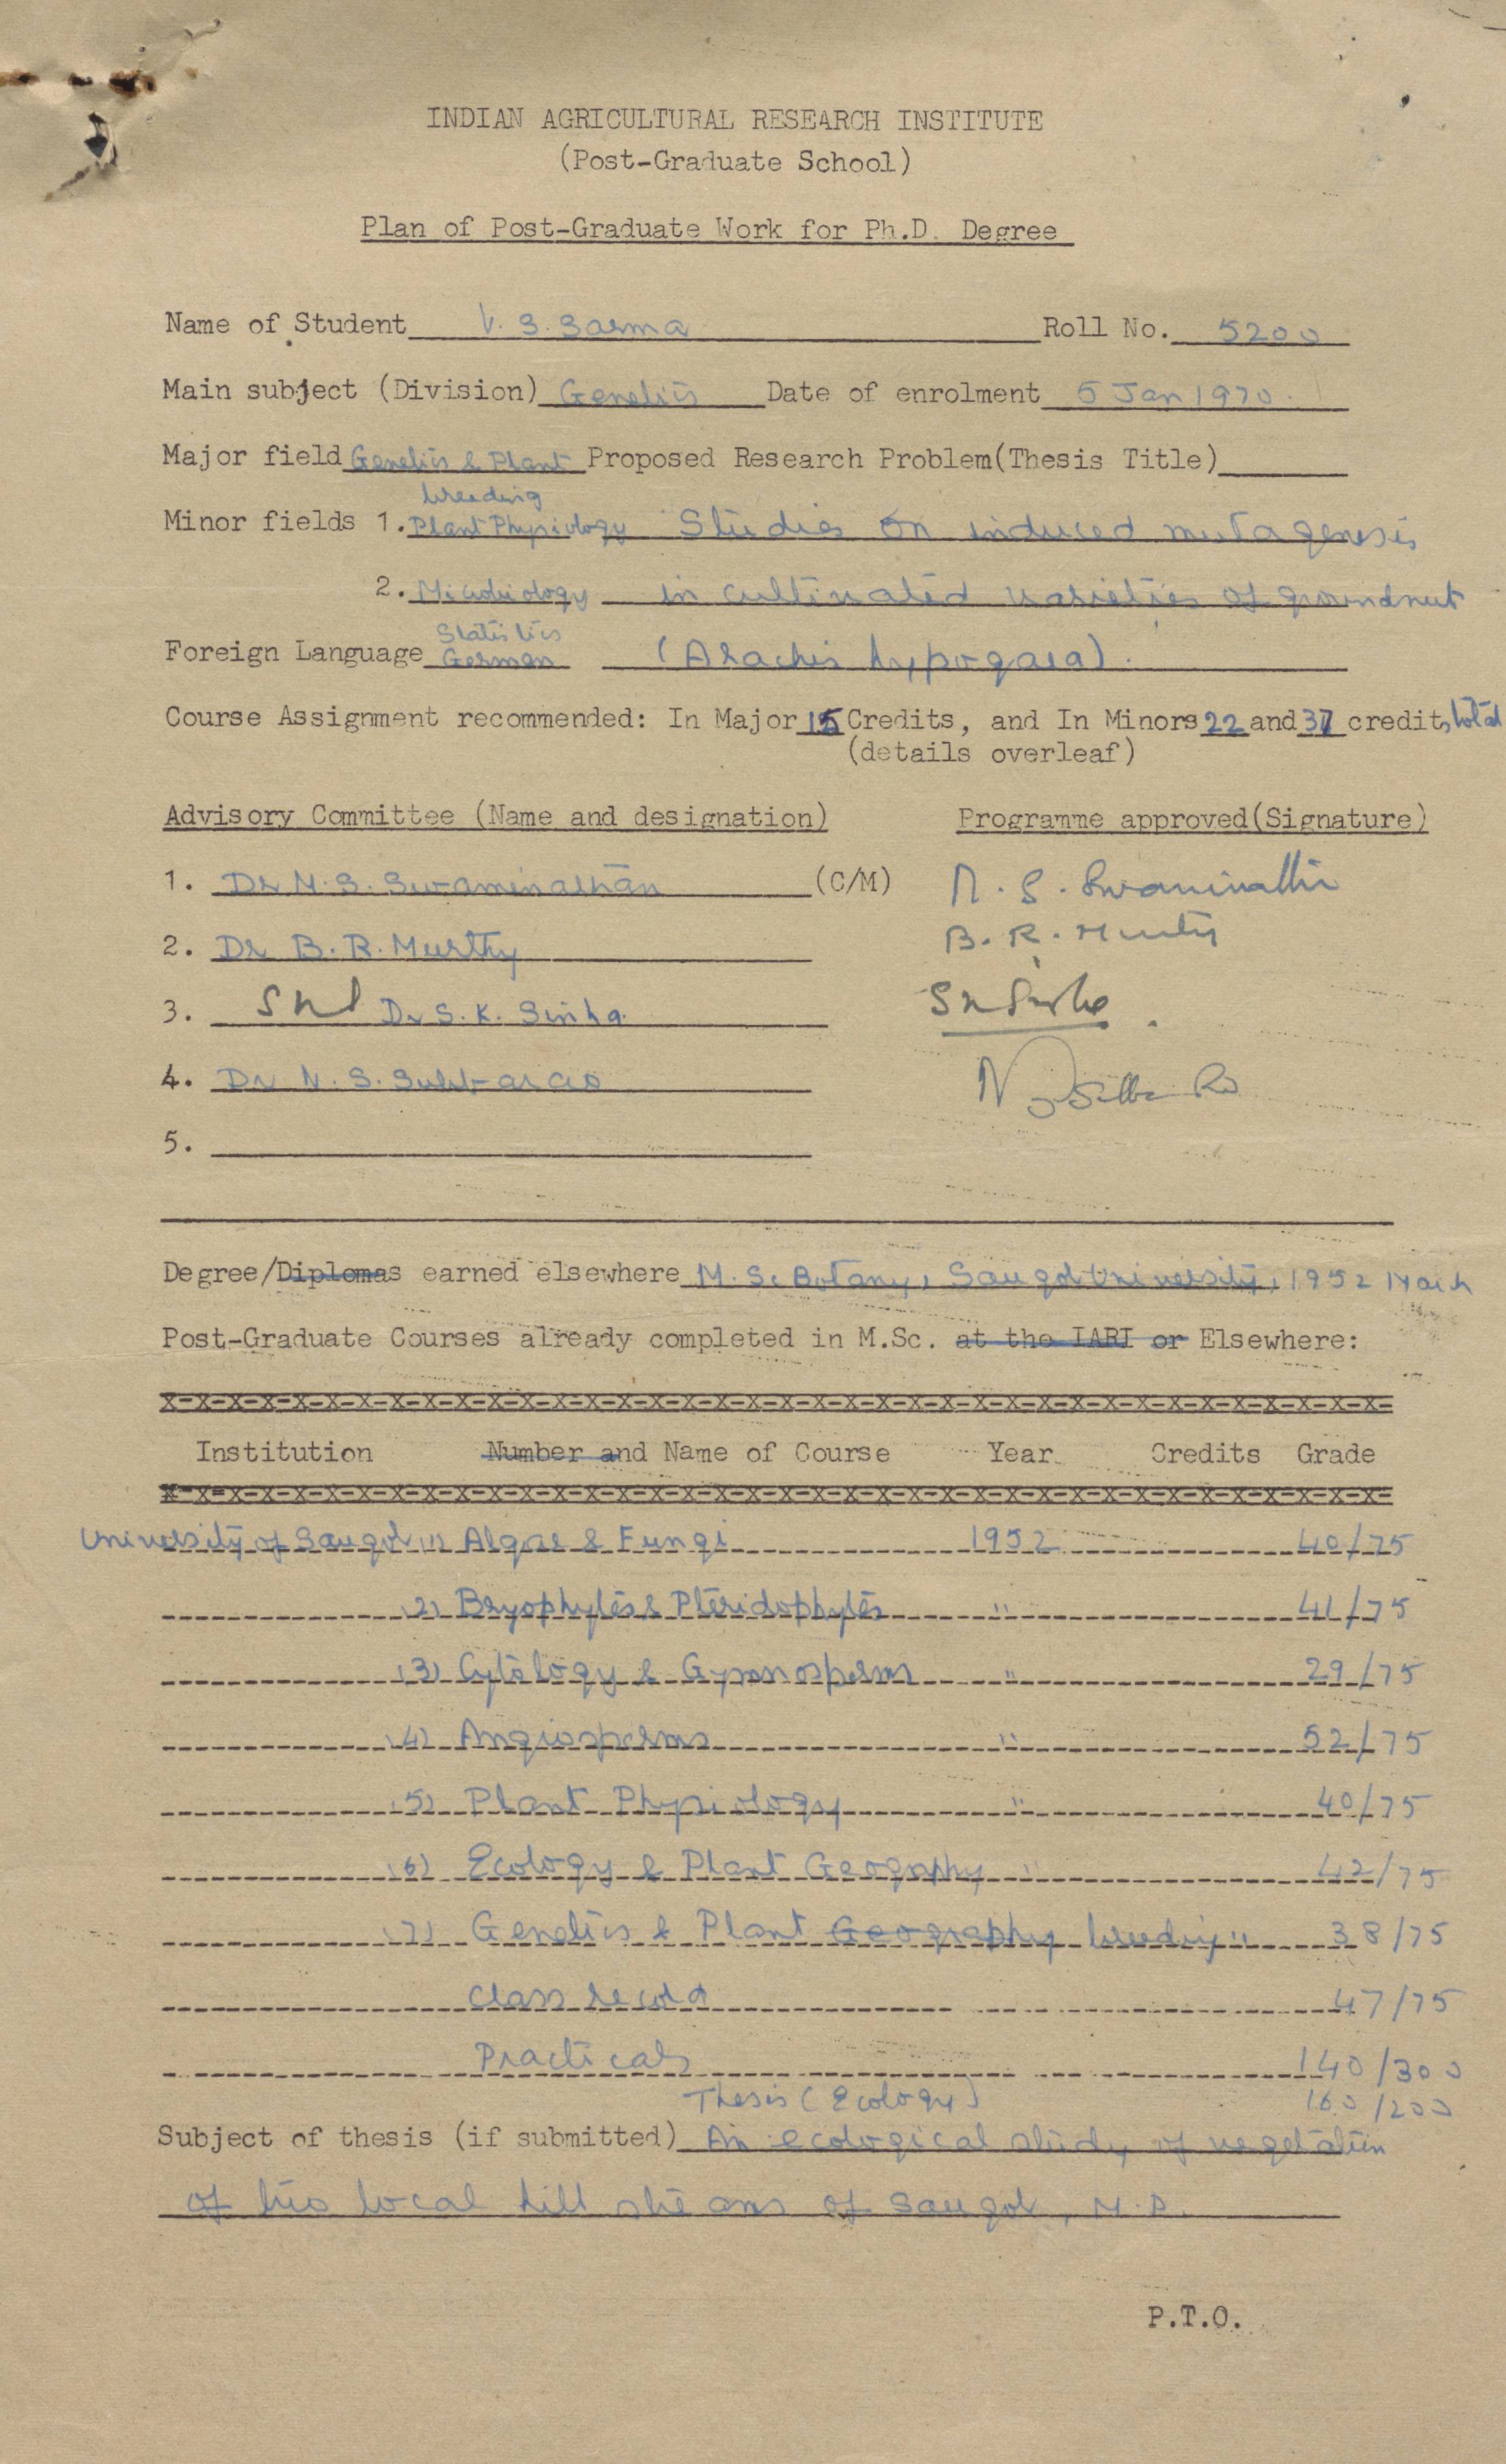 INDIAN AGRICULTURAL RESEARCH INSTITUTE
(Post-Graduate School)
Plan of Post-Graduate Work for Ph.D. Degree
Name of Student V. S. Sarma Roll No. 5200
Main subject (Division) Genetics Date of enrolment 5 Jan 1970.
Major field Genetics & Plant Proposed Research Problem(Thesis Title)
breeding
Minor fields 1. Plant Physiology Studies on induced mutagenesis
2. Microbiology in cultivated varieties of groundnut
Statistics
Foreign Language German (Arachis hypogaea).
Course Assignment recommended: In Major 15 Credits, and In Minors 22 and 37 credits, total
(details overleaf)
Advisory Committee (Name and designation) Programme approved(Signature)
1. Dr M. S. Swaminathan (C/M) M. S. Swaminathan
2. Dr B. R. Murthy B. R. Murty
3. Dr S. K. Sinha SK Sinha
4. Dr N. S. Subbarao N S Subba Rao
5.
Degree/Diplomas earned elsewhere M. Sc Botany, Saugor University, 1952 March
Post-Graduate Courses already completed in M.Sc. at the IARI or Elsewhere:
X-X-X-X-X-X-X-X-X-X-X-X-X-X-X-X-X-X-X-X-X-X-X-X-X-X-X-X-X-X-X-X-X-X-X-X-X-X-
Institution Number and Name of Course Year Credits Grade
X-X-X-X-X-X-X-X-X-X-X-X-X-X-X-X-X-X-X-X-X-X-X-X-X-X-X-X-X-X-X-X-X-X-X-X-X-X-
University of Saugor (1) Algae & Fungi 1952 40/75
(2) Bryophytes & Pteridophytes " 41/75
(3) Cytology & Gymnosperms " 29/75
(4) Angiosperms " 52/75
(5) Plant Physiology " 40/75
(6) Ecology & Plant Geography " 42/75
(7) Genetics & Plant Geography breeding " 38/75
Class record 47/75
Practicals 140/300
Thesis (Ecology) 160/200
Subject of thesis (if submitted) An ecological study of vegetation
of two local hill streams of Saugor, M.P.
P.T.O.